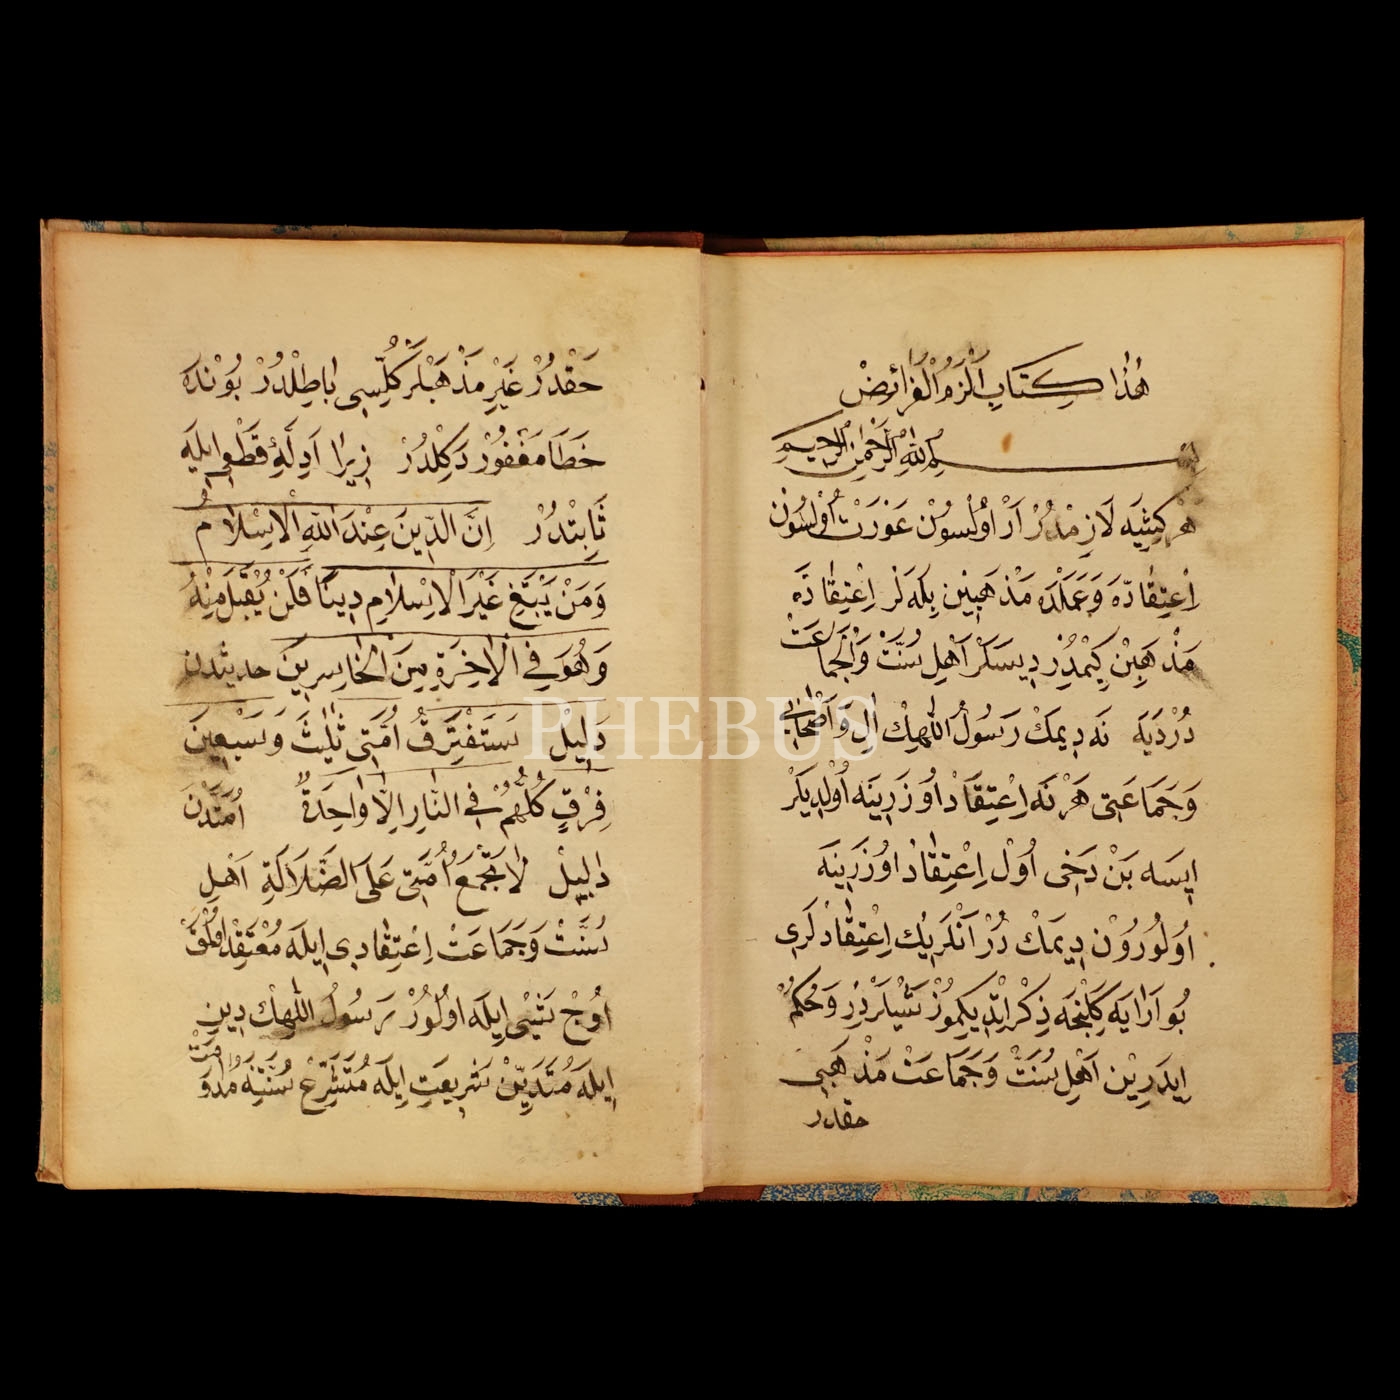 هٰذَا كِتَابِ اَلْزَمُ الْفَرَائِضْ
بِسْمِ اللّٰهِ الرَّحْمٰنِ الرَّحِيمِ
هَرْ كِشِيَه لَازِمْدُرْ اَرْ اُولْسُونْ عَوْرَتْ اُولْسُونْ
اِعْتِقَادّه وَعَمَلْدَه مَذْهَبِينْ بِلَه لَرْ اِعْتِقَادَه
مَذْهَبِينْ كِيمْدُرْ دِيسَكَرْ اَهْلِ سُنَّتْ وَالْجَمَاعَتْ
دُرْدَيَه نَه دِيمَكْ رَسُولُ اللّٰهِكْ اٰلِ وَاَصْحَابِي
وَجَمَاعَتِى هَرْ نَه اِعْتِقَادْ اُوزَرِينَه اُولْدِيلَرْ
اِيسَه بَنْ دَخِى اُولْ اِعْتِقَادْ اُوزَرِينَه
اُولُورُونْ دِيمَكْ دُرْ اَنْلَرِيكْ اِعْتِقَادْلَرِى
بُو اَرَايَه كِلِنْجَه ذِكْرْ اِتْدِيكِمُوزْ شَيْلَرْدُرْ وَحُكْمْ
اِيدَرِينْ اَهْلِ سُنَّتْ وَجَمَاعَتْ مَذْهَبِى
حقلدر
حَقْدُرْ غَيْرِ مَذْهَبْلَرْ كُلِّسِى بَاطِلْدُرْ بُونْدَه
خَطَا مَغْفُورْ دَكِلْدُرْ زِيرَا اَدِلَّهِٔ قَطْعِى اِيلَه
ثَابِتْدُرْ اِنَّ الدِّينَ عِنْدَ اللّٰهِ الْاِسْلَامُ
وَمَنْ يَبْتَغِ غَيْرَ الْاِسْلَامِ دِينًا فَلَنْ يُقْبَلَ مِنْهُ
وَهُوَ فِي الْاٰخِرَةِ مِنَ الْخَاسِرِينَ حديثدن
دَلِيلْ سَتَفْتَرِقُ اُمَّتِى ثَلٰثَ وَسَبْعِينَ
فِرْقٍ كُلُّهُمْ فِى النَّارِ اِلَّا وَاحِدَةٌ اُمَّتْدَنْ
دَلِيلْ لَا تَجْتَمِعُ اُمَّتِى عَلَى الضَّلَالَةِ اَهْلِ
سُنَّتْ وَجَمَاعَتْ اِعْتِقَادِى اِيلَه مُعْتَقِدْ اُولْمَقْ
اُوچْ شَيْى اِيلَه اُولُورْ رَسُولُ اللّٰهِكْ دِينِ
اِيلَه مُتَدَيِّنْ شَرِيعَتِ اِيلَه مُتَشَرِّعْ سُنَّتِنَه مُدَاوَمَتْ